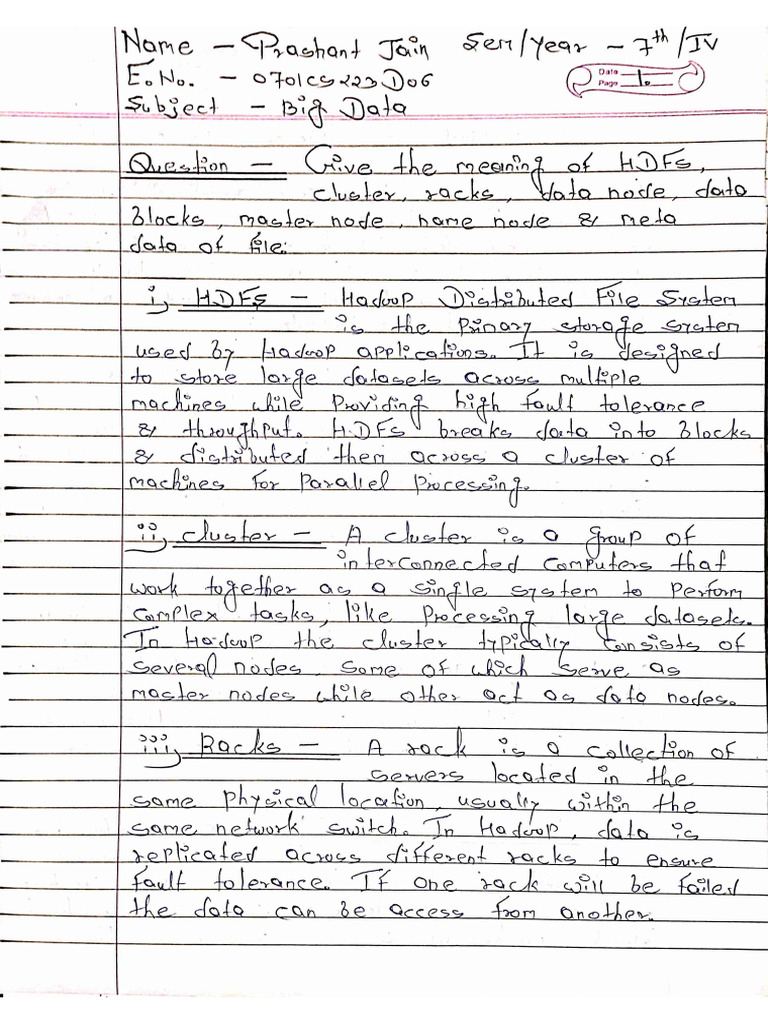 Name - Prashant Jain Sem/Year - 7th/IV
E.No. - 0701CS223D06
Date
Page 1.
Subject - Big Data
Question - Give the meaning of HDFS,
cluster, racks, data node, data
blocks, master node, name node & meta
data of file:
i) HDFS - Hadoop Distributed File System
is the primary storage system
used by Hadoop applications. It is designed
to store large datasets across multiple
machines while providing high fault tolerance
& throughput. HDFS breaks data into blocks
& distributed them across a cluster of
machines for parallel processing.
ii) cluster - A cluster is a group of
interconnected computers that
work together as a single system to perform
complex tasks, like processing large datasets.
In Hadoop the cluster typically consists of
several nodes, some of which serve as
master nodes while other act as data nodes.
iii) Racks - A rack is a collection of
servers located in the
same physical location, usually within the
same network switch. In Hadoop, data is
replicated across different racks to ensure
fault tolerance. If one rack will be failed
the data can be access from another.